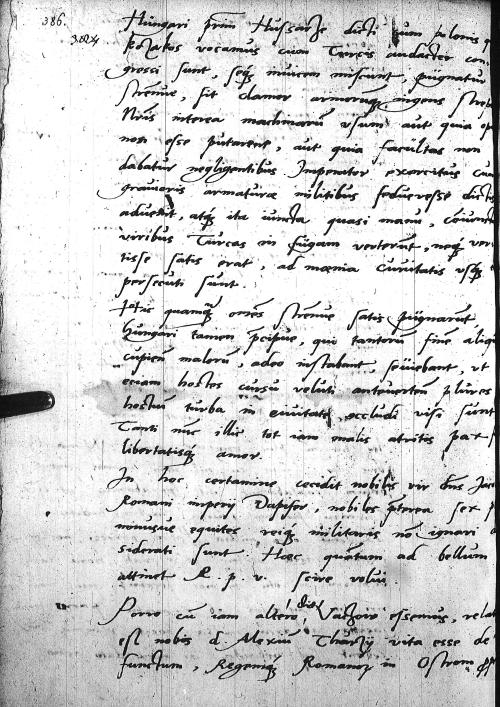 386.
3024
Hungari prim Hussarze dicti quum polonis
kozakos vocamus cum Turcis audacter con
grossi sunt, seq; inuicem miscent, pugnatur
strenue, fit clamor armorumq; ingens strep
Nris interea machinarū vsum aut quia op
non esse putarent, aut quia facultas non
dabatur negligentibus Imperator exercitus cum
grauioris armaturae militibus dictis
aduenit, atq; ita iuncta quasi manu,
viribus Turcas in fugam verterunt, neq; ver
tisse satis erat, ad moenia ciuitatis vsq;
persecuti sunt.
Hic quamq omnes strenue satis pugnarūt
hungari tamen pcipue, qui tantorū finē aliq
cupiunt malorū, adeo instabant, seuiebant, vt
eciam hostes cursu veluti anteuertent plures
hostiū turba in ciuitatē occludi visi sunt
Tanti nūc illis tot iam malis atritis pat
libertatisq; amor.
In hoc certamine cecidit nobilis vir dns Jac
Romani imperij Dapifer, nobiles pterea sex
equites reiq; militaris nō ignari
siderati sunt. Haec quātum ad bellum
attinet R. p. v. scire volui.
Porro cū iam altero die Vachow essemus, relat
est nobis d. Alexiū Thurzy vita esse de
functum, Regemq; Romanor in Ostrom